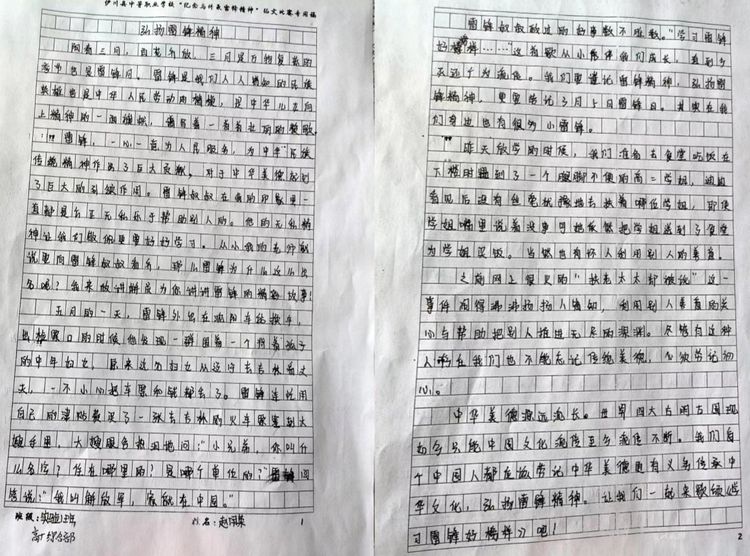 伊川县中等职业学校“纪念与传承雷锋精神”征文比赛专用稿
弘扬雷锋精神
阳春三月，百花齐放，三月是万物复苏的
季节也是雷锋月，雷锋是我们人人皆知的民族
英雄也是中华人民劳动的楷模，是中华儿女向
上精神的一面旗帜，
！”雷锋，一心一意为人民服务，为中华民族
传统精神作出了巨大贡献，对于中华美德起到
了巨大的引领作用。雷锋叔叔在我的印象里一
直都是公正无私乐于帮助别人的。他的无私精
神让我们敬佩更要好好学习。从小我的老师就
说要向雷锋叔叔看齐，那么雷锋为什么这么出
名呢？我来做讲解员为你讲讲雷锋的精彩故事！
五月的一天，雷锋外出在沈阳车站换车，
出检票口的时候他发现一群围着一个背着孩子
的中年妇女，原来这为妇女从辽宁去吉林看丈
夫，一不小心把车票和钱都丢了。雷锋连忙用
自己的津贴费买了一张去吉林的火车票塞到大
嫂手里，大嫂眼含热泪地问：“小兄弟，你叫什
么名字？住在哪里的？是哪个单位的？”雷锋回
答说：“我叫解放军，家就在中国。”
班级：
姓名：
1
雷锋叔叔做过的好事数不胜数。“学习雷锋
好榜样……”这首歌从小伴伴我们成长，直到今
天还广为流传。我们要谨记雷锋精神，弘扬雷
锋精神，更要牢记3月5日雷锋日。其实在我
们身边也有很多小雷锋。
昨天放学的时候，我们准备去食堂吃饭在
下楼时遇到了一个腿脚不便的高二学姐，
看见后没有丝毫犹豫地去扶着哪位学姐，即使
学姐嘴里说着没事可她依然把学姐送到了食堂
为学姐买饭。当然也有坏人利用别人的善意。
之前网上很火的“扶老太太却被讹”这一
事件闹得沸沸扬扬人皆知，利用别人善意的关
心与帮助把别人推进无尽的深渊。尽管有这种
人存在我们也不能忘记传统美德，必须牢记初
心。
中华美德源远流长。世界四大古国古国现
如今只能中国文化流传至今流传不断。我们每
个中国人都应该牢记中华美德更有义务传承中
华文化，弘扬雷锋精神。让我们一起来歌颂《学
习雷锋好榜样》吧！
2